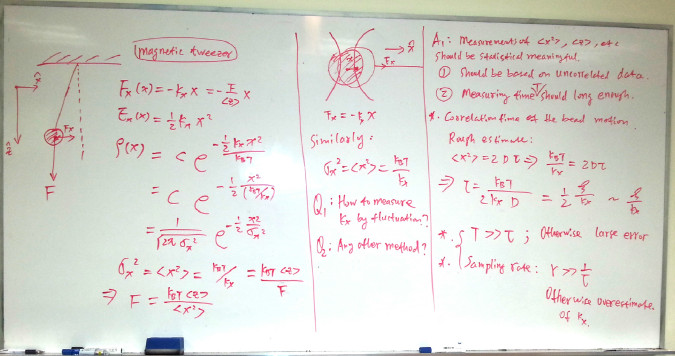 magnetic tweezer
x̂
ẑ
Fx
F
Fx(x) = -kx x = - F/<z> x
Ex(x) = 1/2 kx x²
ρ(x) = c e^(-1/2 kx x² / kBT)
= c e^(-1/2 x²/(kBT/kx))
= 1/√(2π σx²) e^(-1/2 x²/σx²)
σx² = <x²> = kBT/kx = kBT<z>/F
⇒ F = kBT<z>/<x²>
x̂
Fx
Fx = -kx x
Similarly:
σx² = <x²> = kBT/kx
Q1: How to measure
kx by fluctuation?
Q2: Any other method?
A1: Measurements of <x²>, <z>, etc
should be statistical meaningful.
① Should be based on uncorrelated data.
② Measuring time T should long enough.
*. Correlation time of the bead motion.
Rough estimate:
<x²> = 2Dτ ⇒ kBT/kx = 2Dτ
⇒ τ = kBT/2kxD = 1/2 γ/kx ~ γ/kx
*. { T >> τ ; Otherwise large error
*. Sampling rate: r >> 1/τ
Otherwise overestimate
of kx.